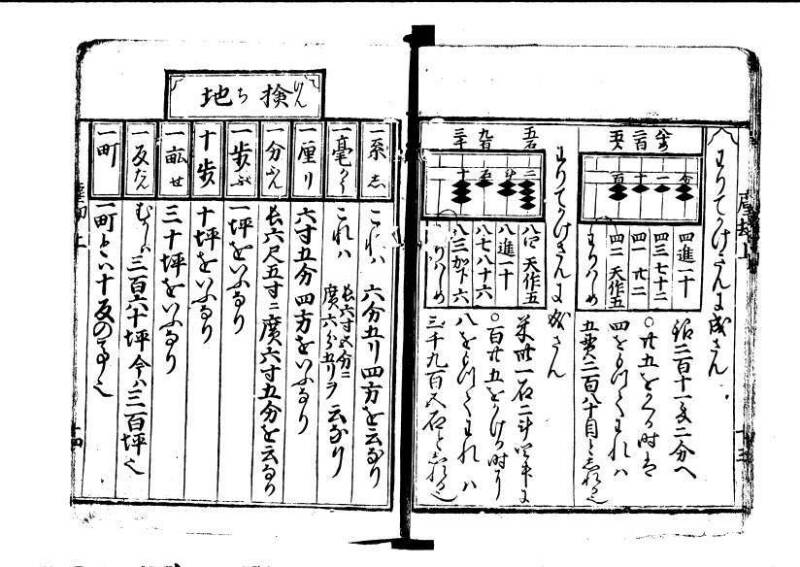 わりてかけさんに成さん
四進一十
四三七十二
四一廿二
四二天作五
わりはしめ
銀二百十一匁二分へ
〇廿五をかくる時は
四をもつてわれハ
五貫二百八十目としるゝ也
わりてかけさんに成さん
八四天作五
八進一十
八七八十六
八三加下六
わりはしめ
〇百廿五をかける時
八をもつてわれハ
三千九百五石としるゝ也
十三
検地
けんち
一糸し これハ 六分五リ四方を云なり
一毫かう これハ 長六寸五分ニ 廣六分五リヲ 云なり
一厘リ 六寸五分四方をいふなり
一分ふん 長六尺五寸ニ廣六寸五分を云なり
一歩ぶ 一坪をいふなり
十歩 十坪をいふなり
一畝せ 三十坪をいふなり
一反たん むかしハ三百六十坪今ハ三百坪也
一町 一町とハ十反の事也
十四